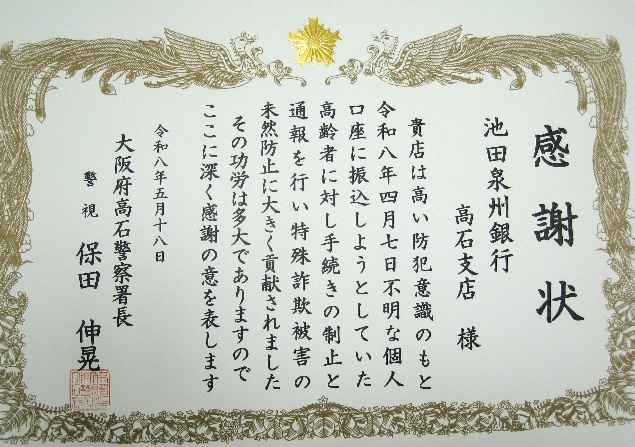 感謝状
池田泉州銀行
高石支店 様
貴店は高い防犯意識のもと
令和八年四月七日不明な個人
口座に振込しようとしていた
高齢者に対し手続きの制止と
通報を行い特殊詐欺被害の
未然防止に大きく貢献されました
その功労は多大でありますので
ここに深く感謝の意を表します
令和八年五月十八日
大阪府高石警察署長
警視 保田 伸晃